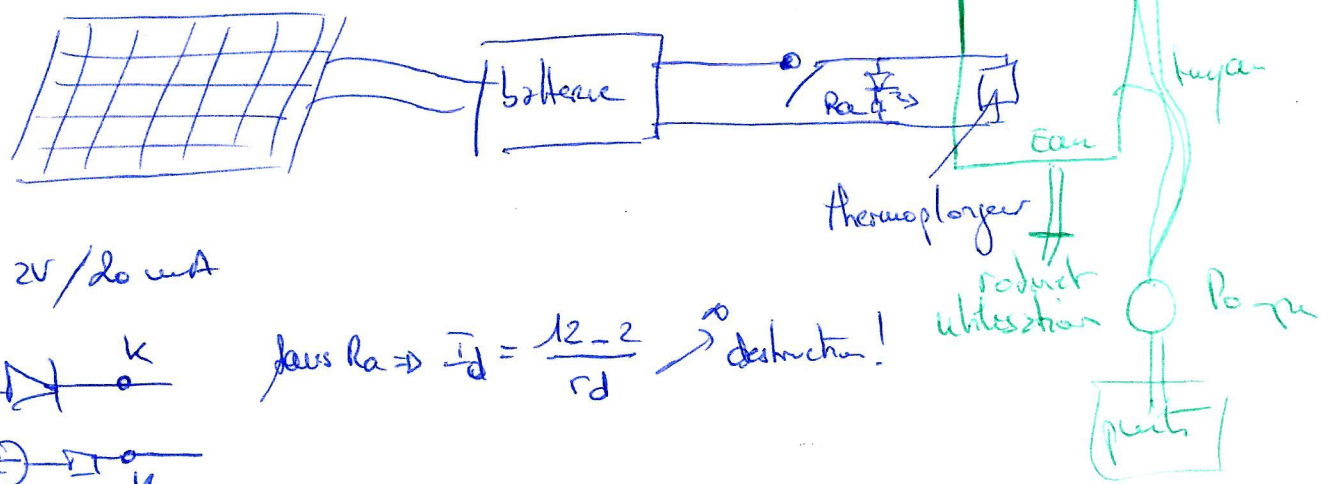 batterie
Ra
tuyau
Eau
thermoplongeur
robinet
utilisation
Pompe
puits
2V/20 mA
K
sans Ra => Id = (12-2)/rd ↗∞ destruction!
K